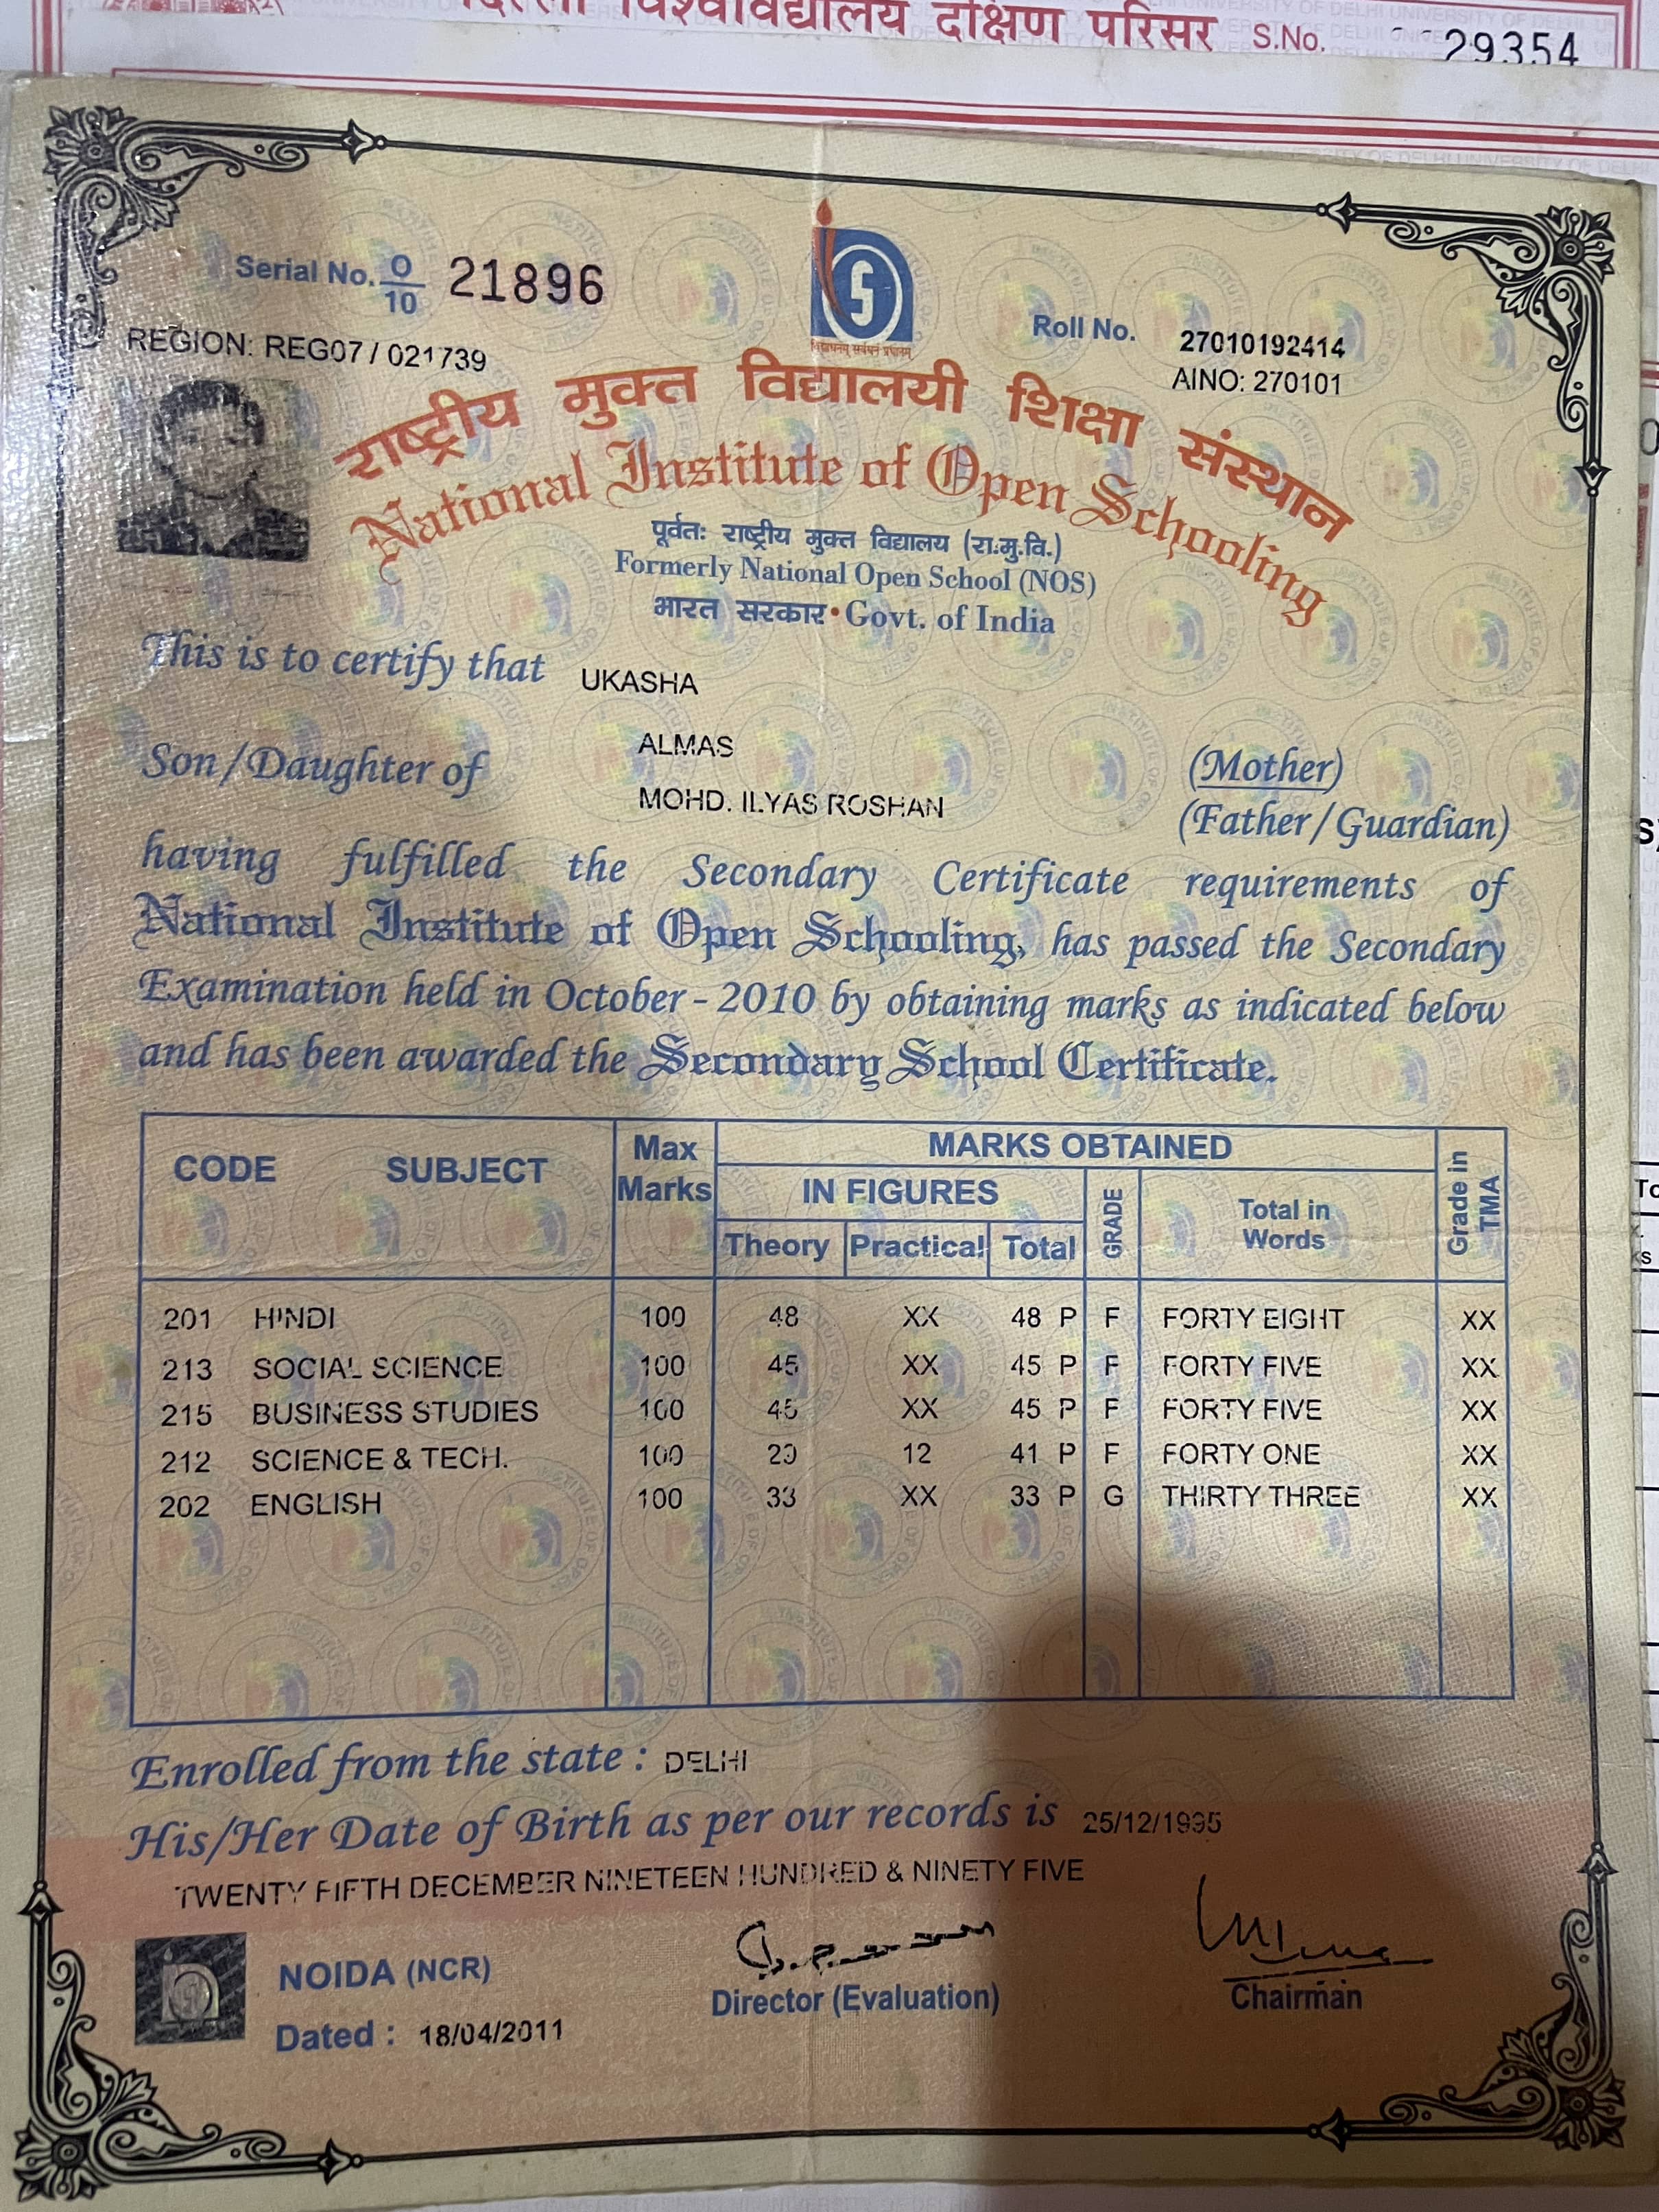 दिल्ली विश्वविद्यालय दक्षिण परिसर S.No. 29354
Serial No. O/10 21896
REGION: REG07 / 021739
Roll No. 27010192414
AINO: 270101
राष्ट्रीय मुक्त विद्यालयी शिक्षा संस्थान
National Institute of Open Schooling
पूर्वतः राष्ट्रीय मुक्त विद्यालय (रा.मु.वि.)
Formerly National Open School (NOS)
भारत सरकार • Govt. of India
This is to certify that UKASHA
Son/Daughter of ALMAS (Mother)
MOHD. ILYAS ROSHAN (Father/Guardian)
having fulfilled the Secondary Certificate requirements of
National Institute of Open Schooling, has passed the Secondary
Examination held in October - 2010 by obtaining marks as indicated below
and has been awarded the Secondary School Certificate.
CODE SUBJECT Max Marks MARKS OBTAINED Grade in TMA
IN FIGURES GRADE Total in Words
Theory Practical Total
201 HINDI 100 48 XX 48 P F FORTY EIGHT XX
213 SOCIAL SCIENCE 100 45 XX 45 P F FORTY FIVE XX
215 BUSINESS STUDIES 100 45 XX 45 P F FORTY FIVE XX
212 SCIENCE & TECH. 100 29 12 41 P F FORTY ONE XX
202 ENGLISH 100 33 XX 33 P G THIRTY THREE XX
Enrolled from the state : DELHI
His/Her Date of Birth as per our records is 25/12/1995
TWENTY FIFTH DECEMBER NINETEEN HUNDRED & NINETY FIVE
NOIDA (NCR)
Dated : 18/04/2011
Director (Evaluation)
Chairman